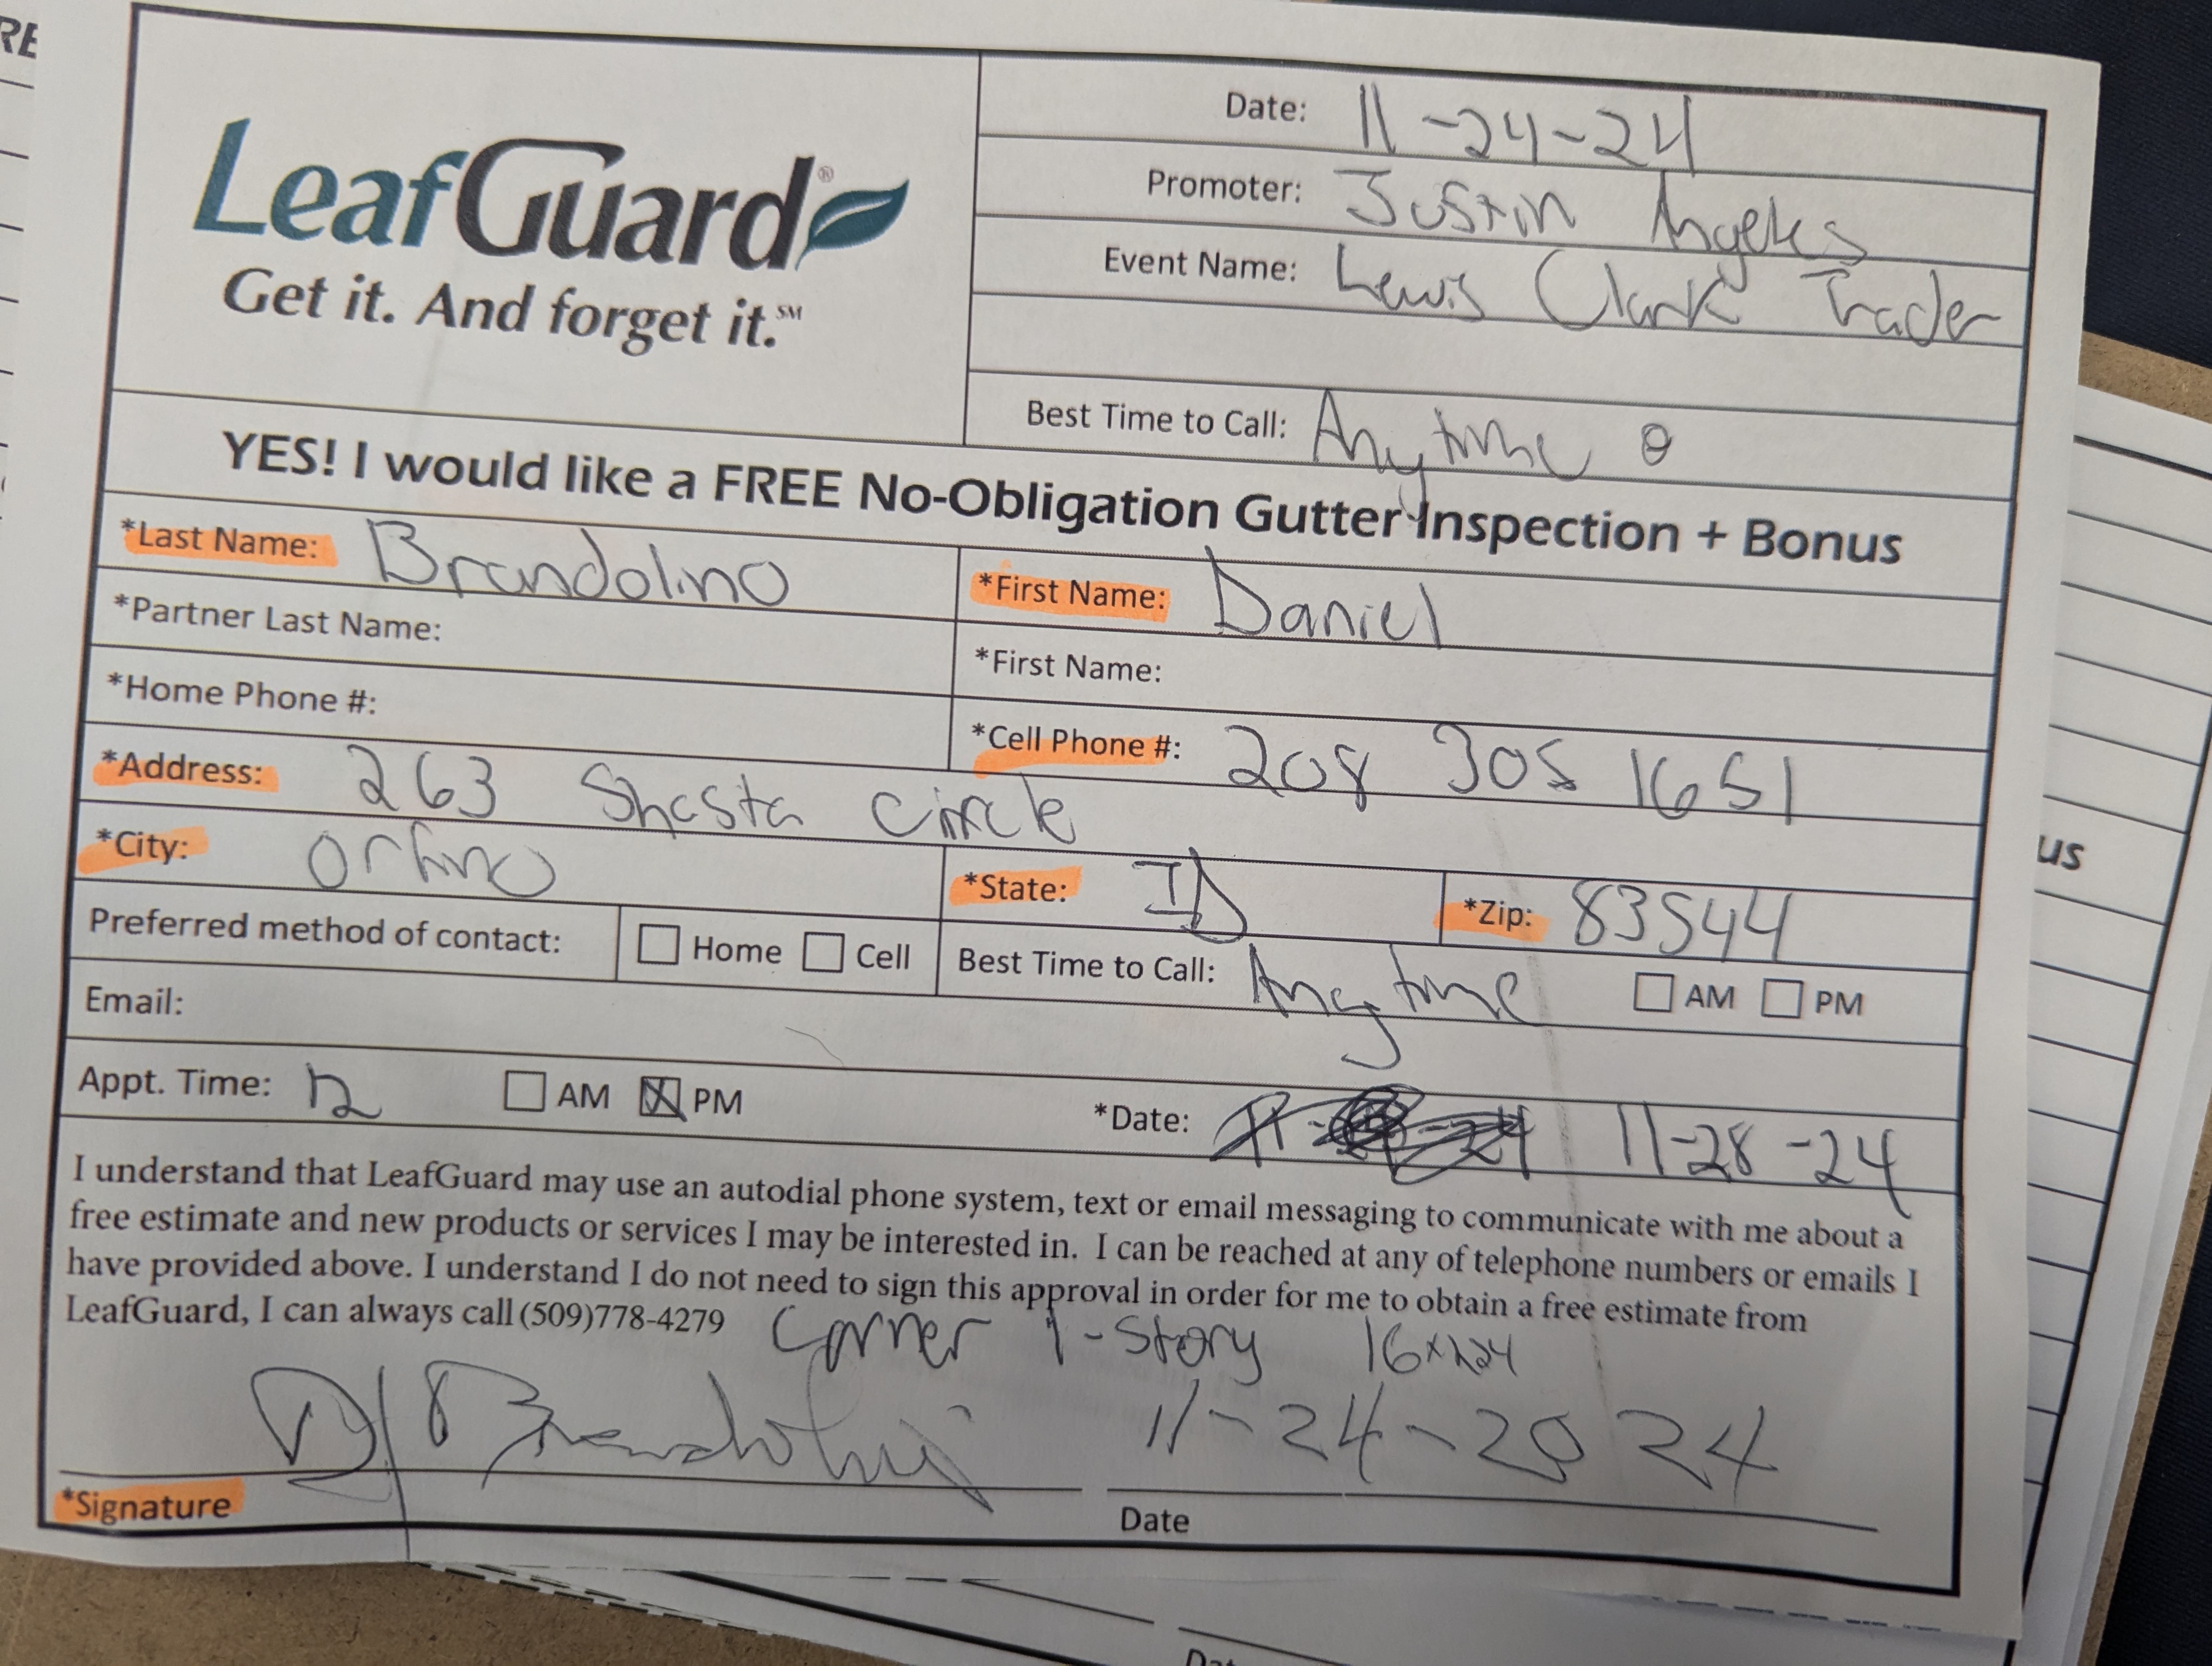 RE
LeafGuard®
Get it. And forget it.℠
Date: 11-24-24
Promoter: Justin Angeles
Event Name: Lewis Clark Trader
Best Time to Call: Anytime
YES! I would like a FREE No-Obligation Gutter Inspection + Bonus
*Last Name: Brandolino *First Name: Daniel
*Partner Last Name: *First Name:
*Home Phone #: *Cell Phone #: 208 305 1651
*Address: 263 Shasta circle
*City: Orfino *State: ID *Zip: 83544
Preferred method of contact: Home Cell Best Time to Call: Anytime AM PM
Email:
Appt. Time: 12 AM PM *Date: 11-28-24
I understand that LeafGuard may use an autodial phone system, text or email messaging to communicate with me about a
free estimate and new products or services I may be interested in. I can be reached at any of telephone numbers or emails I
have provided above. I understand I do not need to sign this approval in order for me to obtain a free estimate from
LeafGuard, I can always call (509)778-4279 Corner 1-Story
Brandolini 11-24-2024
*Signature Date
us